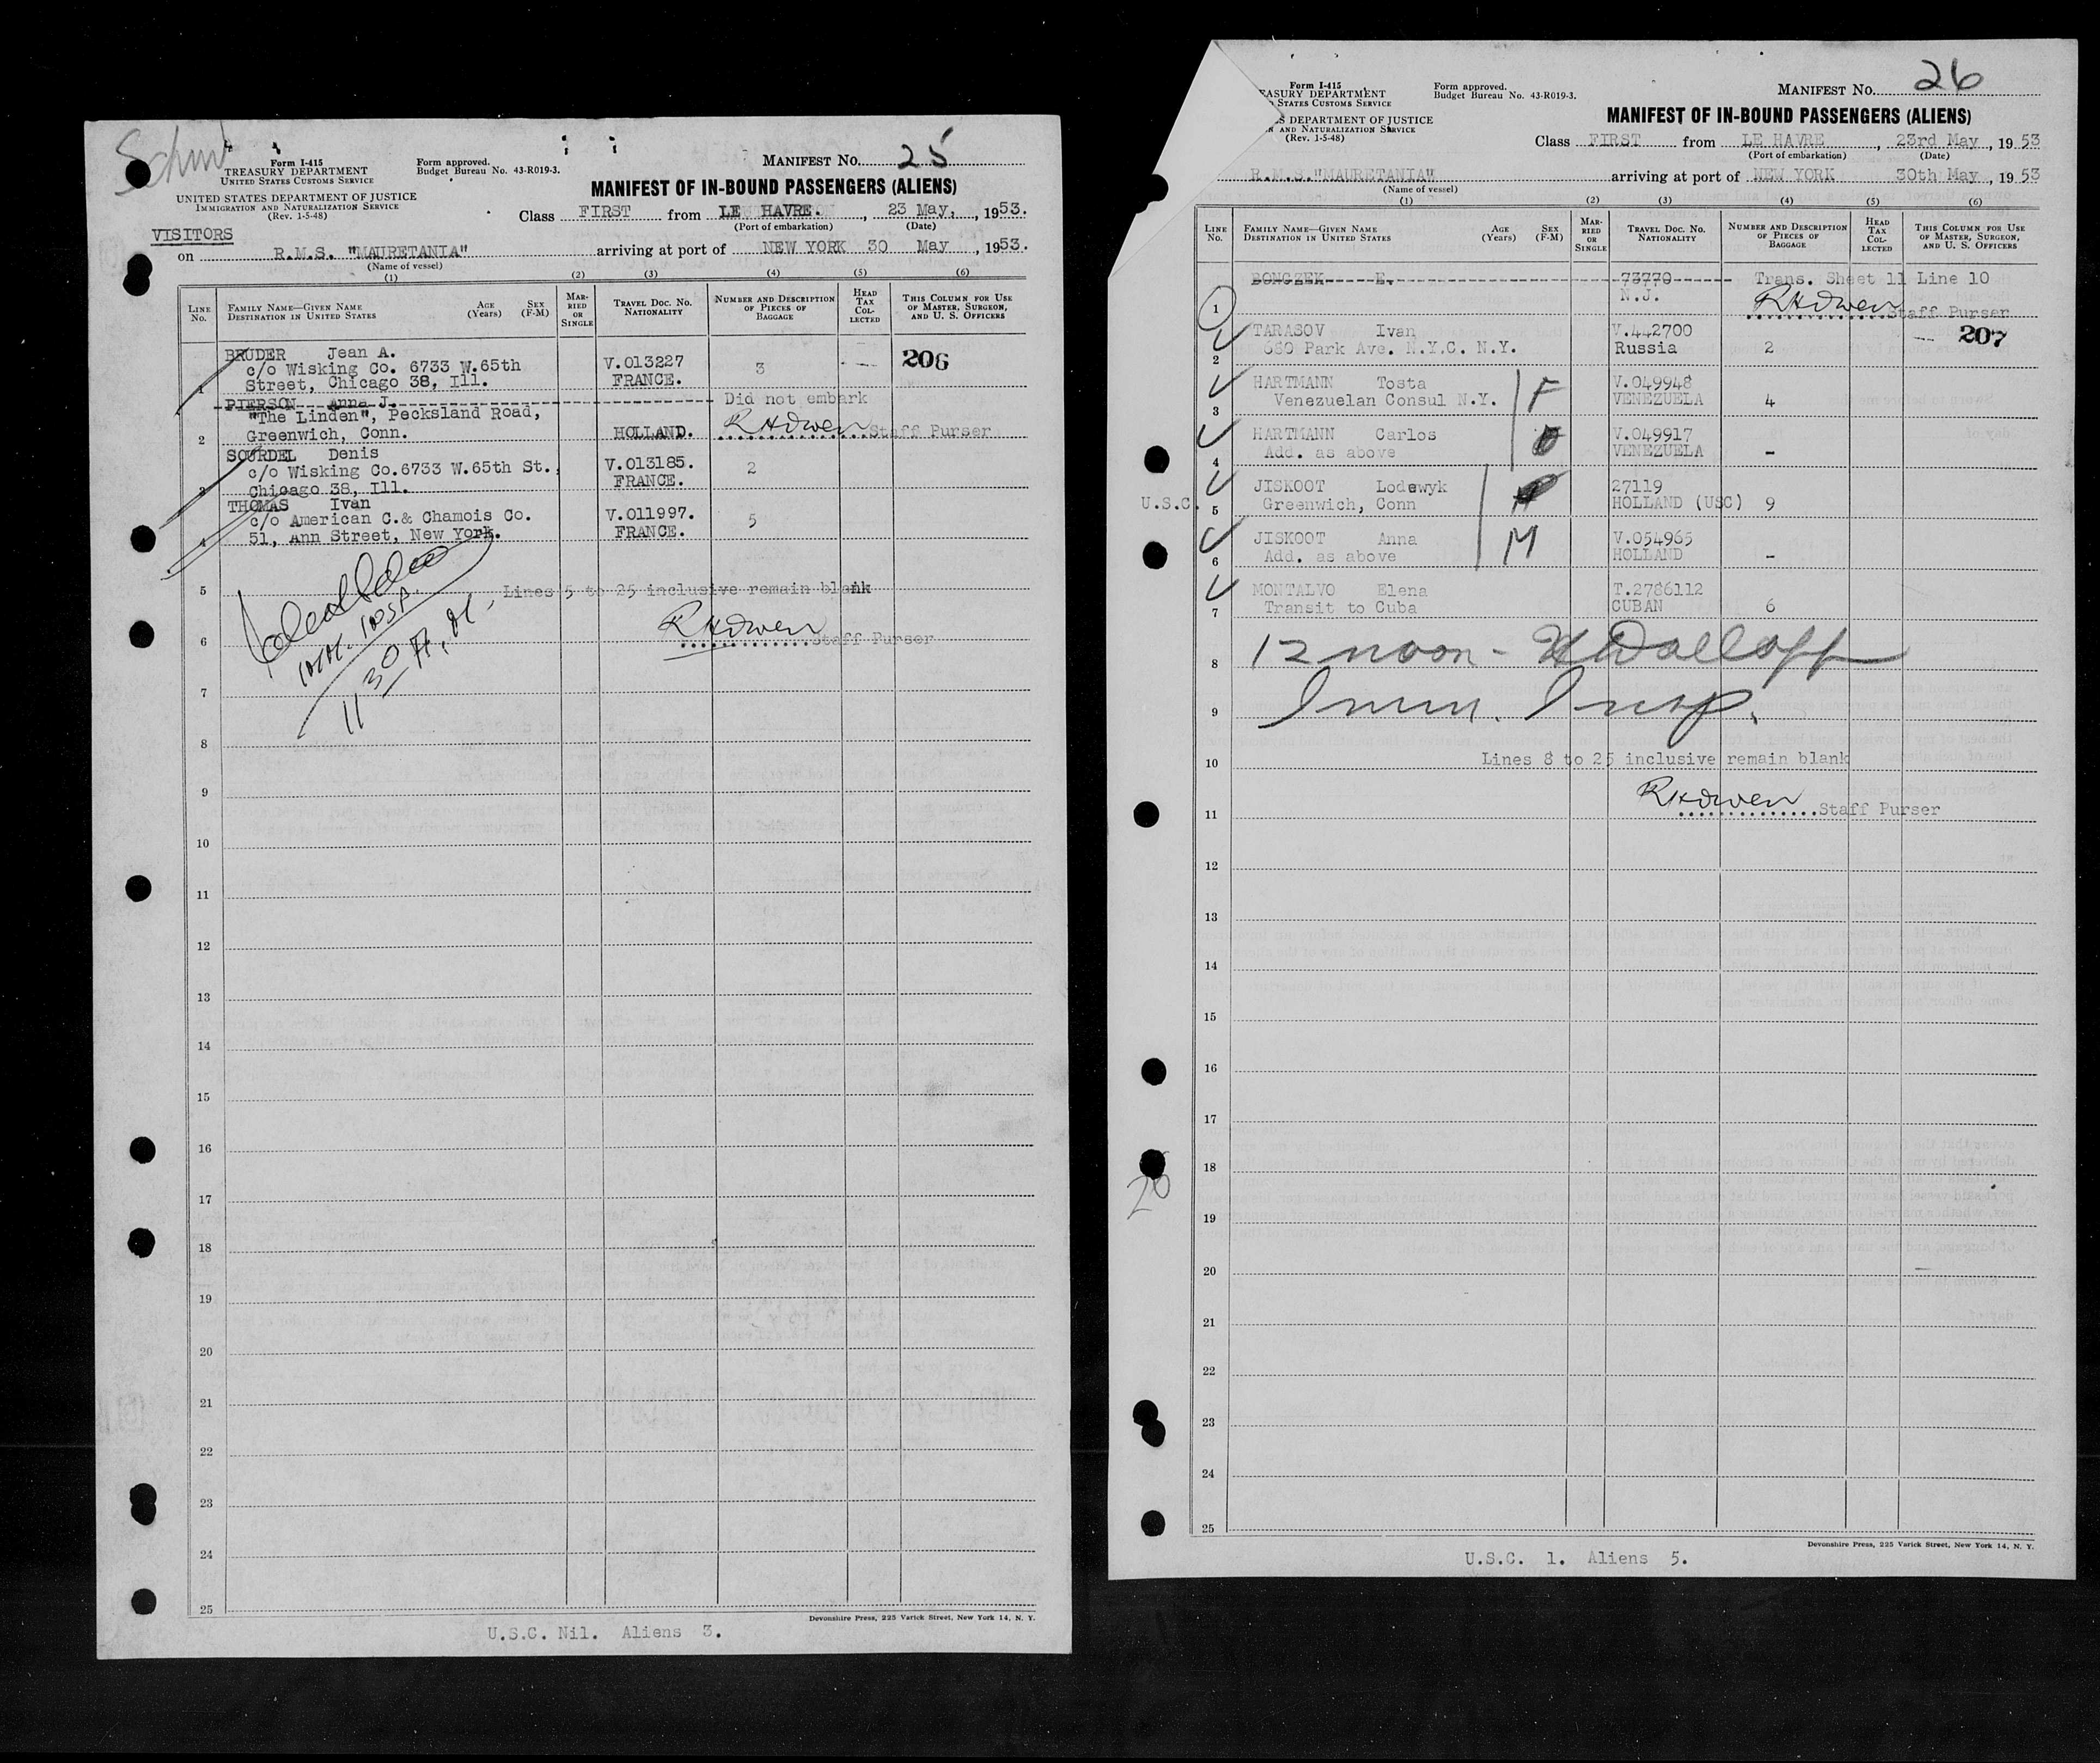 Form I-415
TREASURY DEPARTMENT
UNITED STATES CUSTOMS SERVICE
UNITED STATES DEPARTMENT OF JUSTICE
IMMIGRATION AND NATURALIZATION SERVICE
(Rev. 1-5-48)
Form approved.
Budget Bureau No. 43-R019-3.
MANIFEST No. 25
MANIFEST OF IN-BOUND PASSENGERS (ALIENS)
Class FIRST from LE HAVRE. , 23 May, , 1953.
(Port of embarkation) (Date)
VISITORS
on R.M.S. "MAURETANIA" arriving at port of NEW YORK 30 May , 1953.
(Name of vessel)
(1) (2) (3) (4) (5) (6)
LINE No. FAMILY NAME—GIVEN NAME DESTINATION IN UNITED STATES AGE (Years) SEX (F-M) MARRIED OR SINGLE TRAVEL DOC. No. NATIONALITY NUMBER AND DESCRIPTION OF PIECES OF BAGGAGE HEAD TAX COLLECTED THIS COLUMN FOR USE OF MASTER, SURGEON, AND U. S. OFFICERS
BRUDER Jean A.
c/o Wisking Co. 6733 W.65th V.013227 3 --- 206
1 Street, Chicago 38, Ill. FRANCE.
PIERSON Anna J. Did not embark
"The Linden", Pecksland Road,
2 Greenwich, Conn. HOLLAND. RHOwen Staff Purser
SOURDEL Denis
c/o Wisking Co.6733 W.65th St., V.013185. 2
3 Chicago 38, Ill. FRANCE.
THOMAS Ivan
c/o American C.& Chamois Co. V.011997. 5
4 51, Ann Street, New York. FRANCE.
5 Lines 5 to 25 inclusive remain blank
Imm. Insp.
11 30 A.M.
6 RHOwen Staff Purser
7
8
9
10
11
12
13
14
15
16
17
18
19
20
21
22
23
24
25
Devonshire Press, 225 Varick Street, New York 14, N. Y.
U.S.C. Nil. Aliens 3.
Form I-415
EASURY DEPARTMENT
STATES CUSTOMS SERVICE
S DEPARTMENT OF JUSTICE
AND NATURALIZATION SERVICE
(Rev. 1-5-48)
Form approved.
Budget Bureau No. 43-R019-3.
MANIFEST No. 26
MANIFEST OF IN-BOUND PASSENGERS (ALIENS)
Class FIRST from LE HAVRE , 23rd May , 1953
(Port of embarkation) (Date)
R.M.S."MAURETANIA" arriving at port of NEW YORK 30th May , 1953
(Name of vessel)
(1) (2) (3) (4) (5) (6)
LINE No. FAMILY NAME—GIVEN NAME DESTINATION IN UNITED STATES AGE (Years) SEX (F-M) MARRIED OR SINGLE TRAVEL DOC. No. NATIONALITY NUMBER AND DESCRIPTION OF PIECES OF BAGGAGE HEAD TAX COLLECTED THIS COLUMN FOR USE OF MASTER, SURGEON, AND U. S. OFFICERS
BONGZEK E. 73770 Trans. Sheet 11 Line 10
1 N.J. RHOwen Staff Purser
TARASOV Ivan V.442700 --- 207
2 680 Park Ave. N.Y.C. N.Y. Russia 2
HARTMANN Tosta F V.049948
3 Venezuelan Consul N.Y. VENEZUELA 4
HARTMANN Carlos V.049917
4 Add. as above VENEZUELA -
JISKOOT Lodewyk 27119
U.S.C. 5 Greenwich, Conn HOLLAND (USC) 9
JISKOOT Anna M V.054965
6 Add. as above HOLLAND -
MONTALVO Elena T.2786112
7 Transit to Cuba CUBAN 6
8 12 noon -
9 Imm. Insp.
10 Lines 8 to 25 inclusive remain blank
11 RHOwen Staff Purser
12
13
14
15
16
17
18
26
19
20
21
22
23
24
25
Devonshire Press, 225 Varick Street, New York 14, N. Y.
U.S.C. 1. Aliens 5.